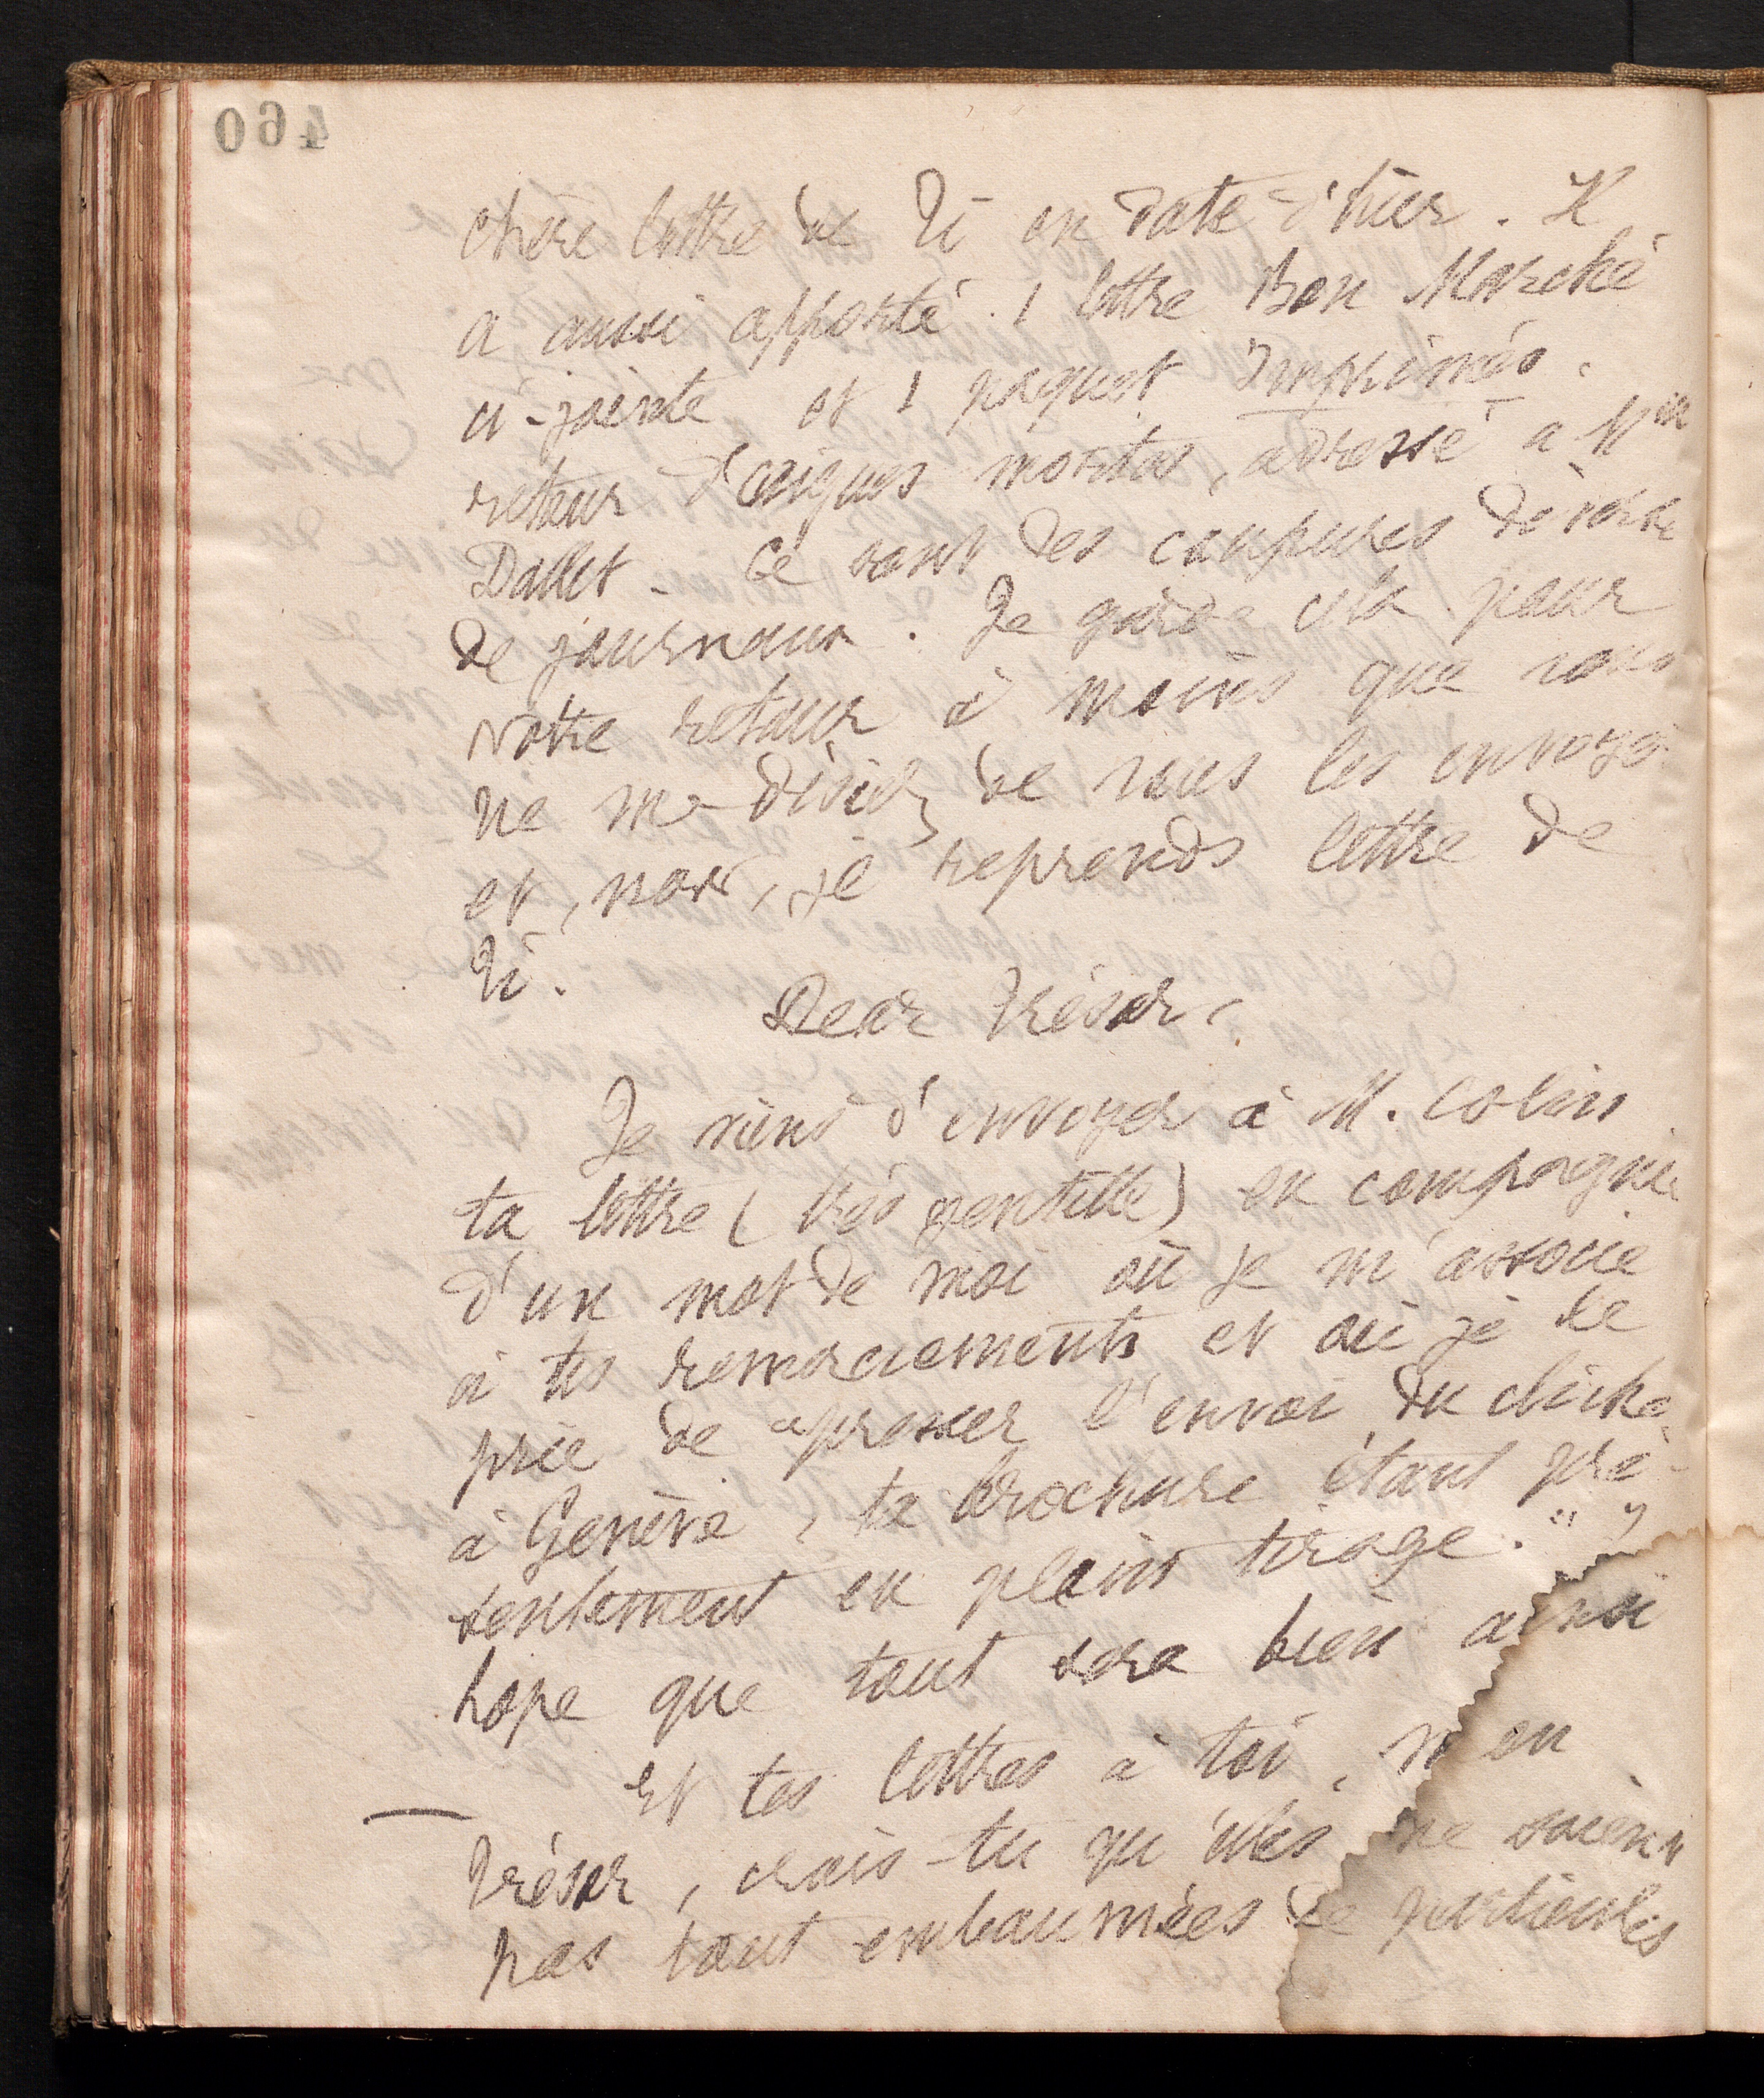 460
chère lettre de Ti en date d'hier. Il
a aussi apporté 1 lettre Bon Marché
ci-jointe et 1 paquet Imprimés,
retour d'Aigues mortes, adressé a Mme
Dallet - Ce sont des coupures de
de journaux. Je garde cela pour
votre retour à moins que vous
ne me disiez de vous les envoyer
et, now, je reprends lettre de
Ti.
Dear Trésor,
Je viens d'envoyer à M. Colin
ta lettre (très gentille) en compagnie
d'un mot de moi où je m'associe
à tes remerciements et où je le
prie de presser l'envoi du cliché
à Genève, ta brochure étant pré-
sentement en plein tirage."
hope que tout sera bien ainsi
Et tes lettres à toi, m en
Trésor, crois-tu qu'elles ne soient
pas tout embaumées de particules